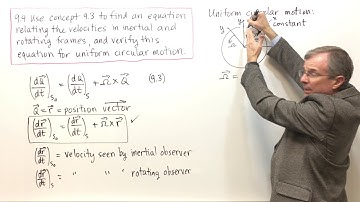 9.4 Use concept 9.3 to find an equation
relating the velocities in inertial and
rotating frames, and verify this
equation for uniform circular motion.
(dQ⃗/dt)_S₀ = (dQ⃗/dt)_S + Ω⃗ × Q⃗ (9.3)
Q⃗ = r⃗ = position vector
(dr⃗/dt)_S₀ = (dr⃗/dt)_S + Ω⃗ × r⃗ ✓
(dr⃗/dt)_S₀ = velocity seen by inertial observer
(dr⃗/dt)_S = " " " rotating observer
Uniform circular motion:
y
constant
Ω⃗ =